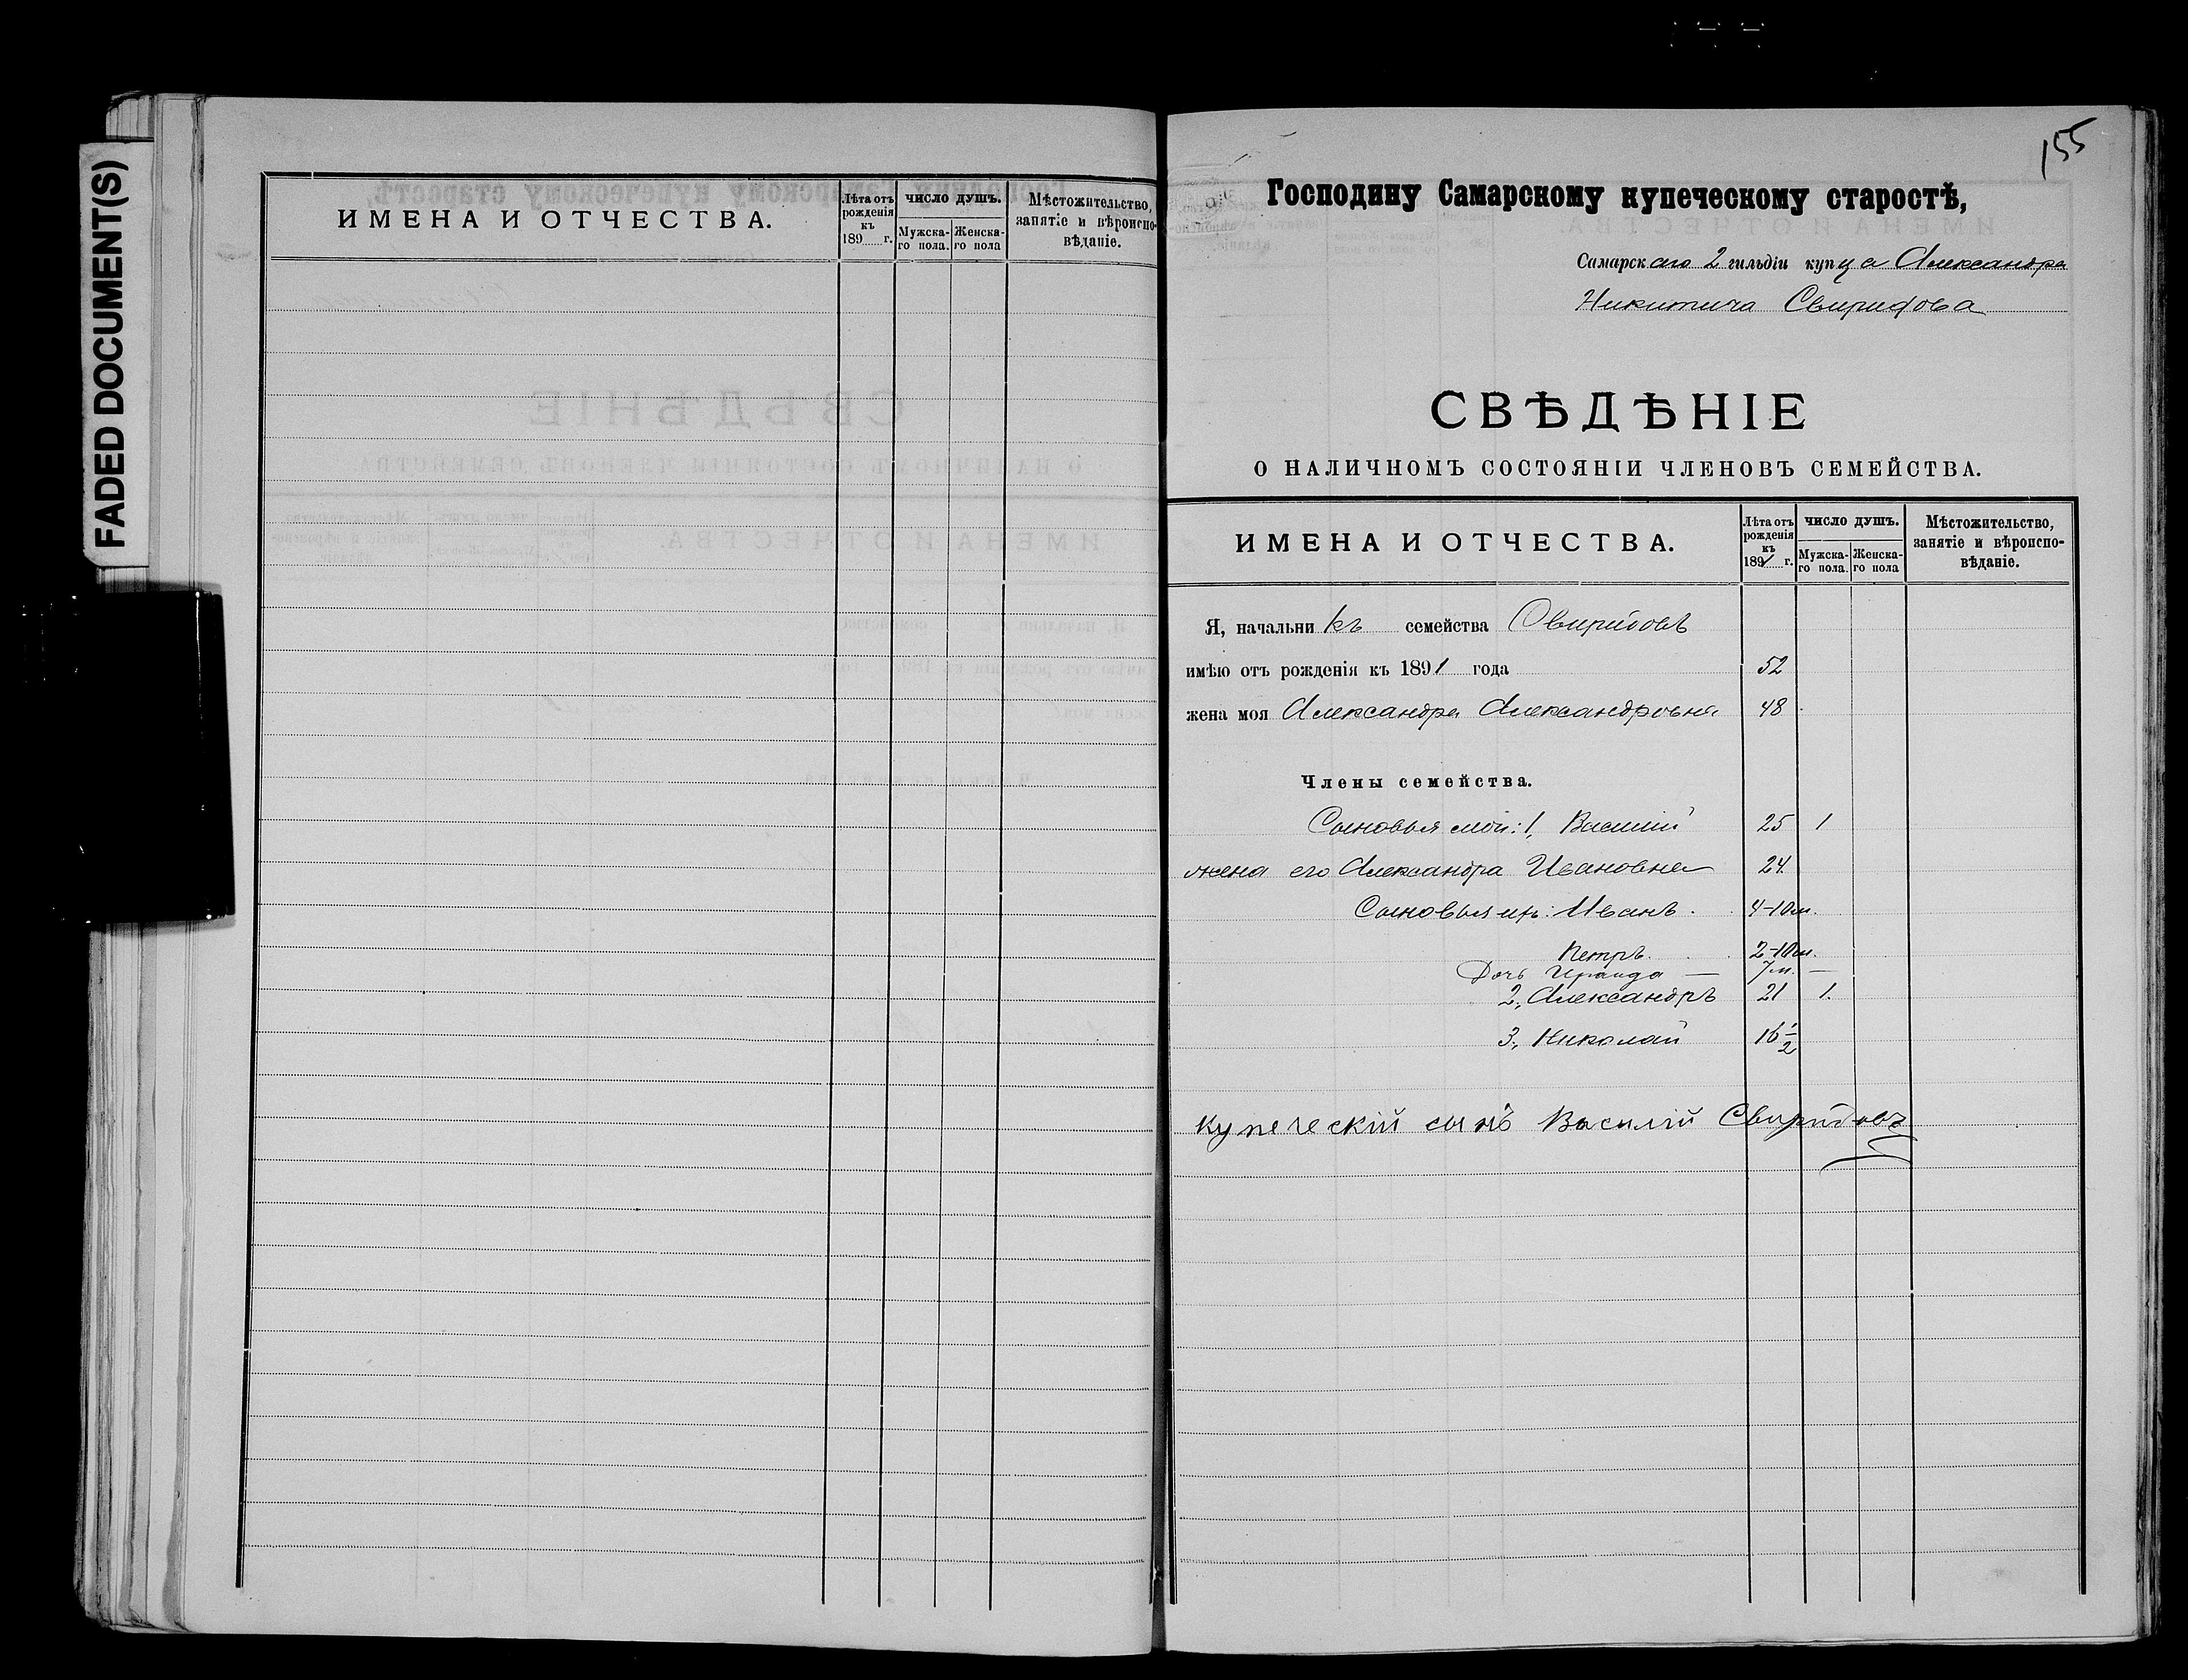 FADED DOCUMENT(S)
ИМЕНА И ОТЧЕСТВА.
Лѣта отъ рожденія къ 189 г.
ЧИСЛО ДУШЪ.
Мужска-го пола.
Женска-го пола
Мѣстожительство, занятіе и вѣроиспо-вѣданіе.
155
Господину Самарскому купеческому старостѣ,
Самарскаго 2 гильдіи купца Александра
Никитича Свиридова
СВѢДѢНІЕ
О НАЛИЧНОМЪ СОСТОЯНІИ ЧЛЕНОВЪ СЕМЕЙСТВА.
ИМЕНА И ОТЧЕСТВА.
Лѣта отъ рожденія къ 1891 г.
ЧИСЛО ДУШЪ.
Мужска-го пола.
Женска-го пола
Мѣстожительство, занятіе и вѣроиспо-вѣданіе.
Я, начальникъ семейства Свиридовъ
имѣю отъ рожденія къ 1891 года 52
жена моя Александра Александровна 48
Члены семейства.
Сыновья мои: 1, Василий 25 1
жена его Александра Ивановна 24.
Сыновья ихъ: Иванъ. 4-10м.
Петръ. 2-10м.
Дочь Ираида — 7м. —
2, Александръ 21 1.
3, Николай 16 1/2
купеческій сынъ Василій Свиридовъ